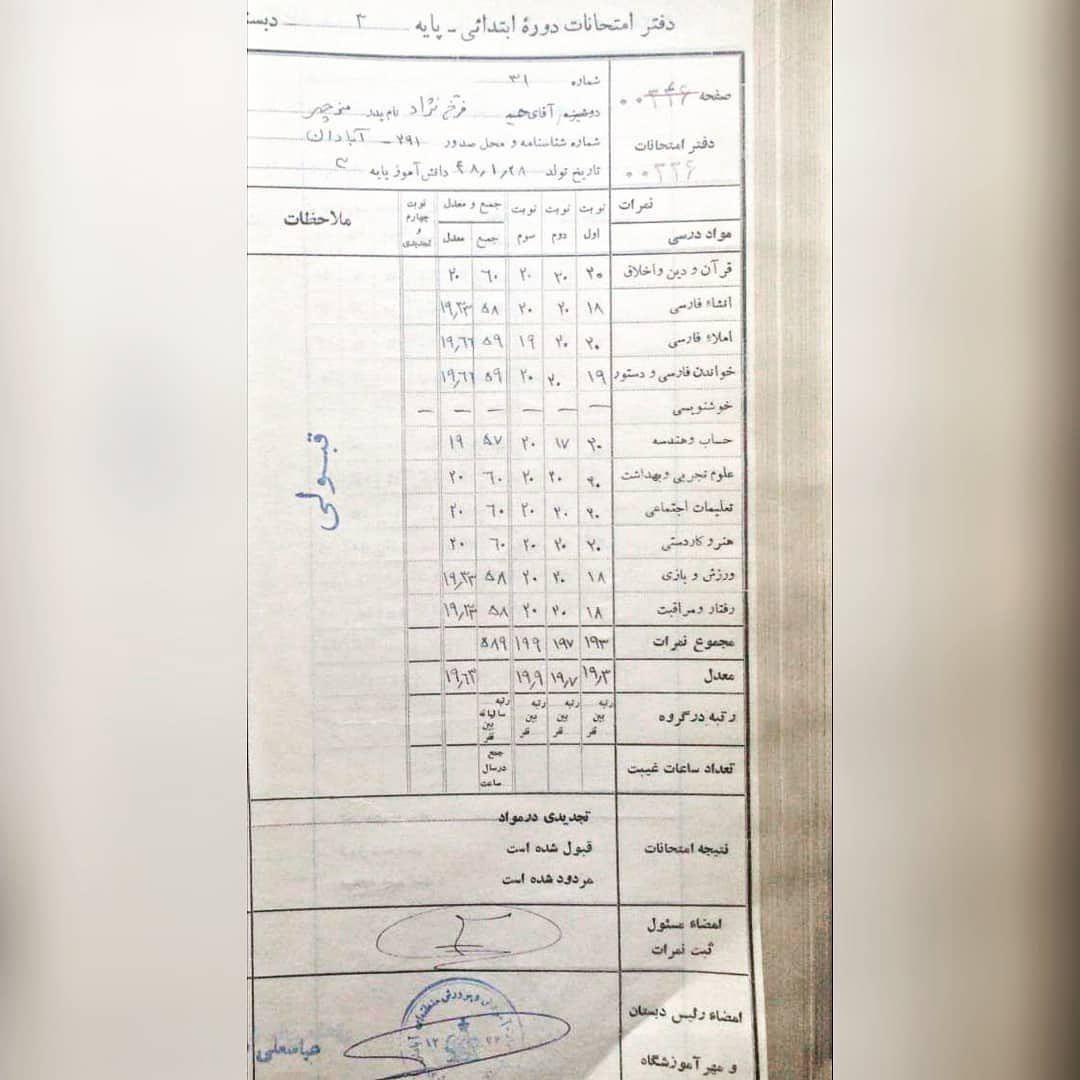 دفتر امتحانات دورهٔ ابتدائی ـ پایه ۳
صفحه ۰۰۳۴۶
دفتر امتحانات
۰۰۳۳۶
شماره ۳۱
دوشیزه/آقای حمید فرخ نژاد نام پدر منوچهر
شماره شناسنامه و محل صدور ۲۹۱ - آبادان
تاریخ تولد ۴۸/۱/۲۸ دانش‌آموز پایه ۳
نمرات نوبت اول نوبت دوم نوبت سوم جمع و معدل نوبت چهارم و تجدیدی ملاحظات
مواد درسی جمع معدل
قرآن و دین و اخلاق ۲۰ ۲۰ ۲۰ ۶۰ ۲۰
انشاء فارسی ۱۸ ۲۰ ۲۰ ۵۸ ۱۹٫۳۳
املاء فارسی ۲۰ ۲۰ ۱۹ ۵۹ ۱۹٫۶۶
خواندن فارسی و دستور ۱۹ ۲۰ ۲۰ ۵۹ ۱۹٫۶۶
خوشنویسی — — — — — —
حساب و هندسه ۲۰ ۱۷ ۲۰ ۵۷ ۱۹
علوم تجربی و بهداشت ۲۰ ۲۰ ۲۰ ۶۰ ۲۰
تعلیمات اجتماعی ۲۰ ۲۰ ۲۰ ۶۰ ۲۰
هنر و کاردستی ۲۰ ۲۰ ۲۰ ۶۰ ۲۰
ورزش و بازی ۱۸ ۲۰ ۲۰ ۵۸ ۱۹٫۳۳
رفتار و مراقبت ۱۸ ۲۰ ۲۰ ۵۸ ۱۹٫۳۳
مجموع نمرات ۱۹۳ ۱۹۷ ۱۹۹ ۵۸۹
معدل ۱۹٫۳ ۱۹٫۷ ۱۹٫۹ ۱۹٫۶۳
قبولی
رتبه در گروه رتبه بین نفر رتبه بین نفر رتبه بین نفر رتبه سالیانه بین نفر
تعداد ساعات غیبت جمع در سال ساعت
نتیجه امتحانات
تجدیدی در مواد
قبول شده است
مردود شده است
امضاء مسئول
ثبت نمرات
امضاء رئیس دبستان
و مهر آموزشگاه
عباسعلی